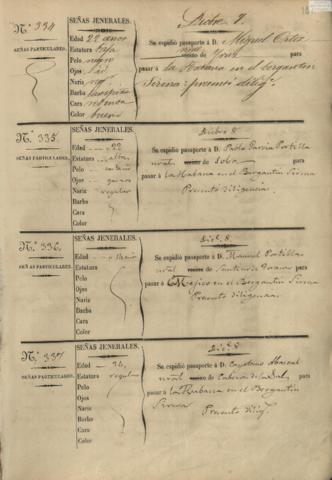 Nº 334
SEÑAS PARTICULARES.
SEÑAS JENERALES.
Edad 22 años
Estatura baja
Pelo negro
Ojos
Nariz
Barba
Cara redonda
Color bueno
Dicbre 7.
Se espidió pasaporte á D. Miguel
vecino de para
pasar á la Habana en el bergantin
Serena: presentó dilig.
Nº 335
SEÑAS PARTICULARES.
SEÑAS JENERALES.
Edad 22
Estatura
Pelo castaño
Ojos
Nariz regular
Barba
Cara
Color
Dicbre 8.
Se espidió pasaporte á D. Pedro Portilla
natral vecino de para
pasar á la Habana en el Bergantin Serena
Presentó diligencias.
Nº 336
SEÑAS PARTICULARES.
SEÑAS JENERALES.
Edad
Estatura
Pelo
Ojos
Nariz
Barba
Cara
Color
Dice. 8.
Se espidió pasaporte á D. Manuel Portilla
natral vecino de para
pasar á Mejico en el Bergantin Serena
Presentó diligencias.
Nº 337
SEÑAS PARTICULARES.
SEÑAS JENERALES.
Edad 36
Estatura regular
Pelo
Ojos
Nariz
Barba
Cara
Color
Dice. 8.
Se espidió pasaporte á D. Cayetano
natral vecino de Cabezon de la Sal para
pasar á la Habana en el Bergantin
Serena Presentó dilig.